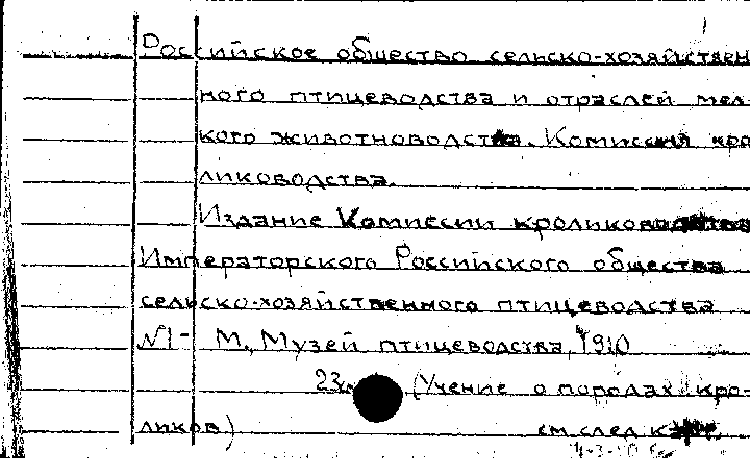 Российское общество сельско-хозяйствен
ного птицеводства и отраслей мел
кого животноводства. Комиссия кро
лиководства.
Издание Комиссии кролиководства
Императорского Российского общества
сельско-хозяйственного птицеводства
№1- М., Музей птицеводства, 1910
23 (Учение о породах кро-
ликов) см след